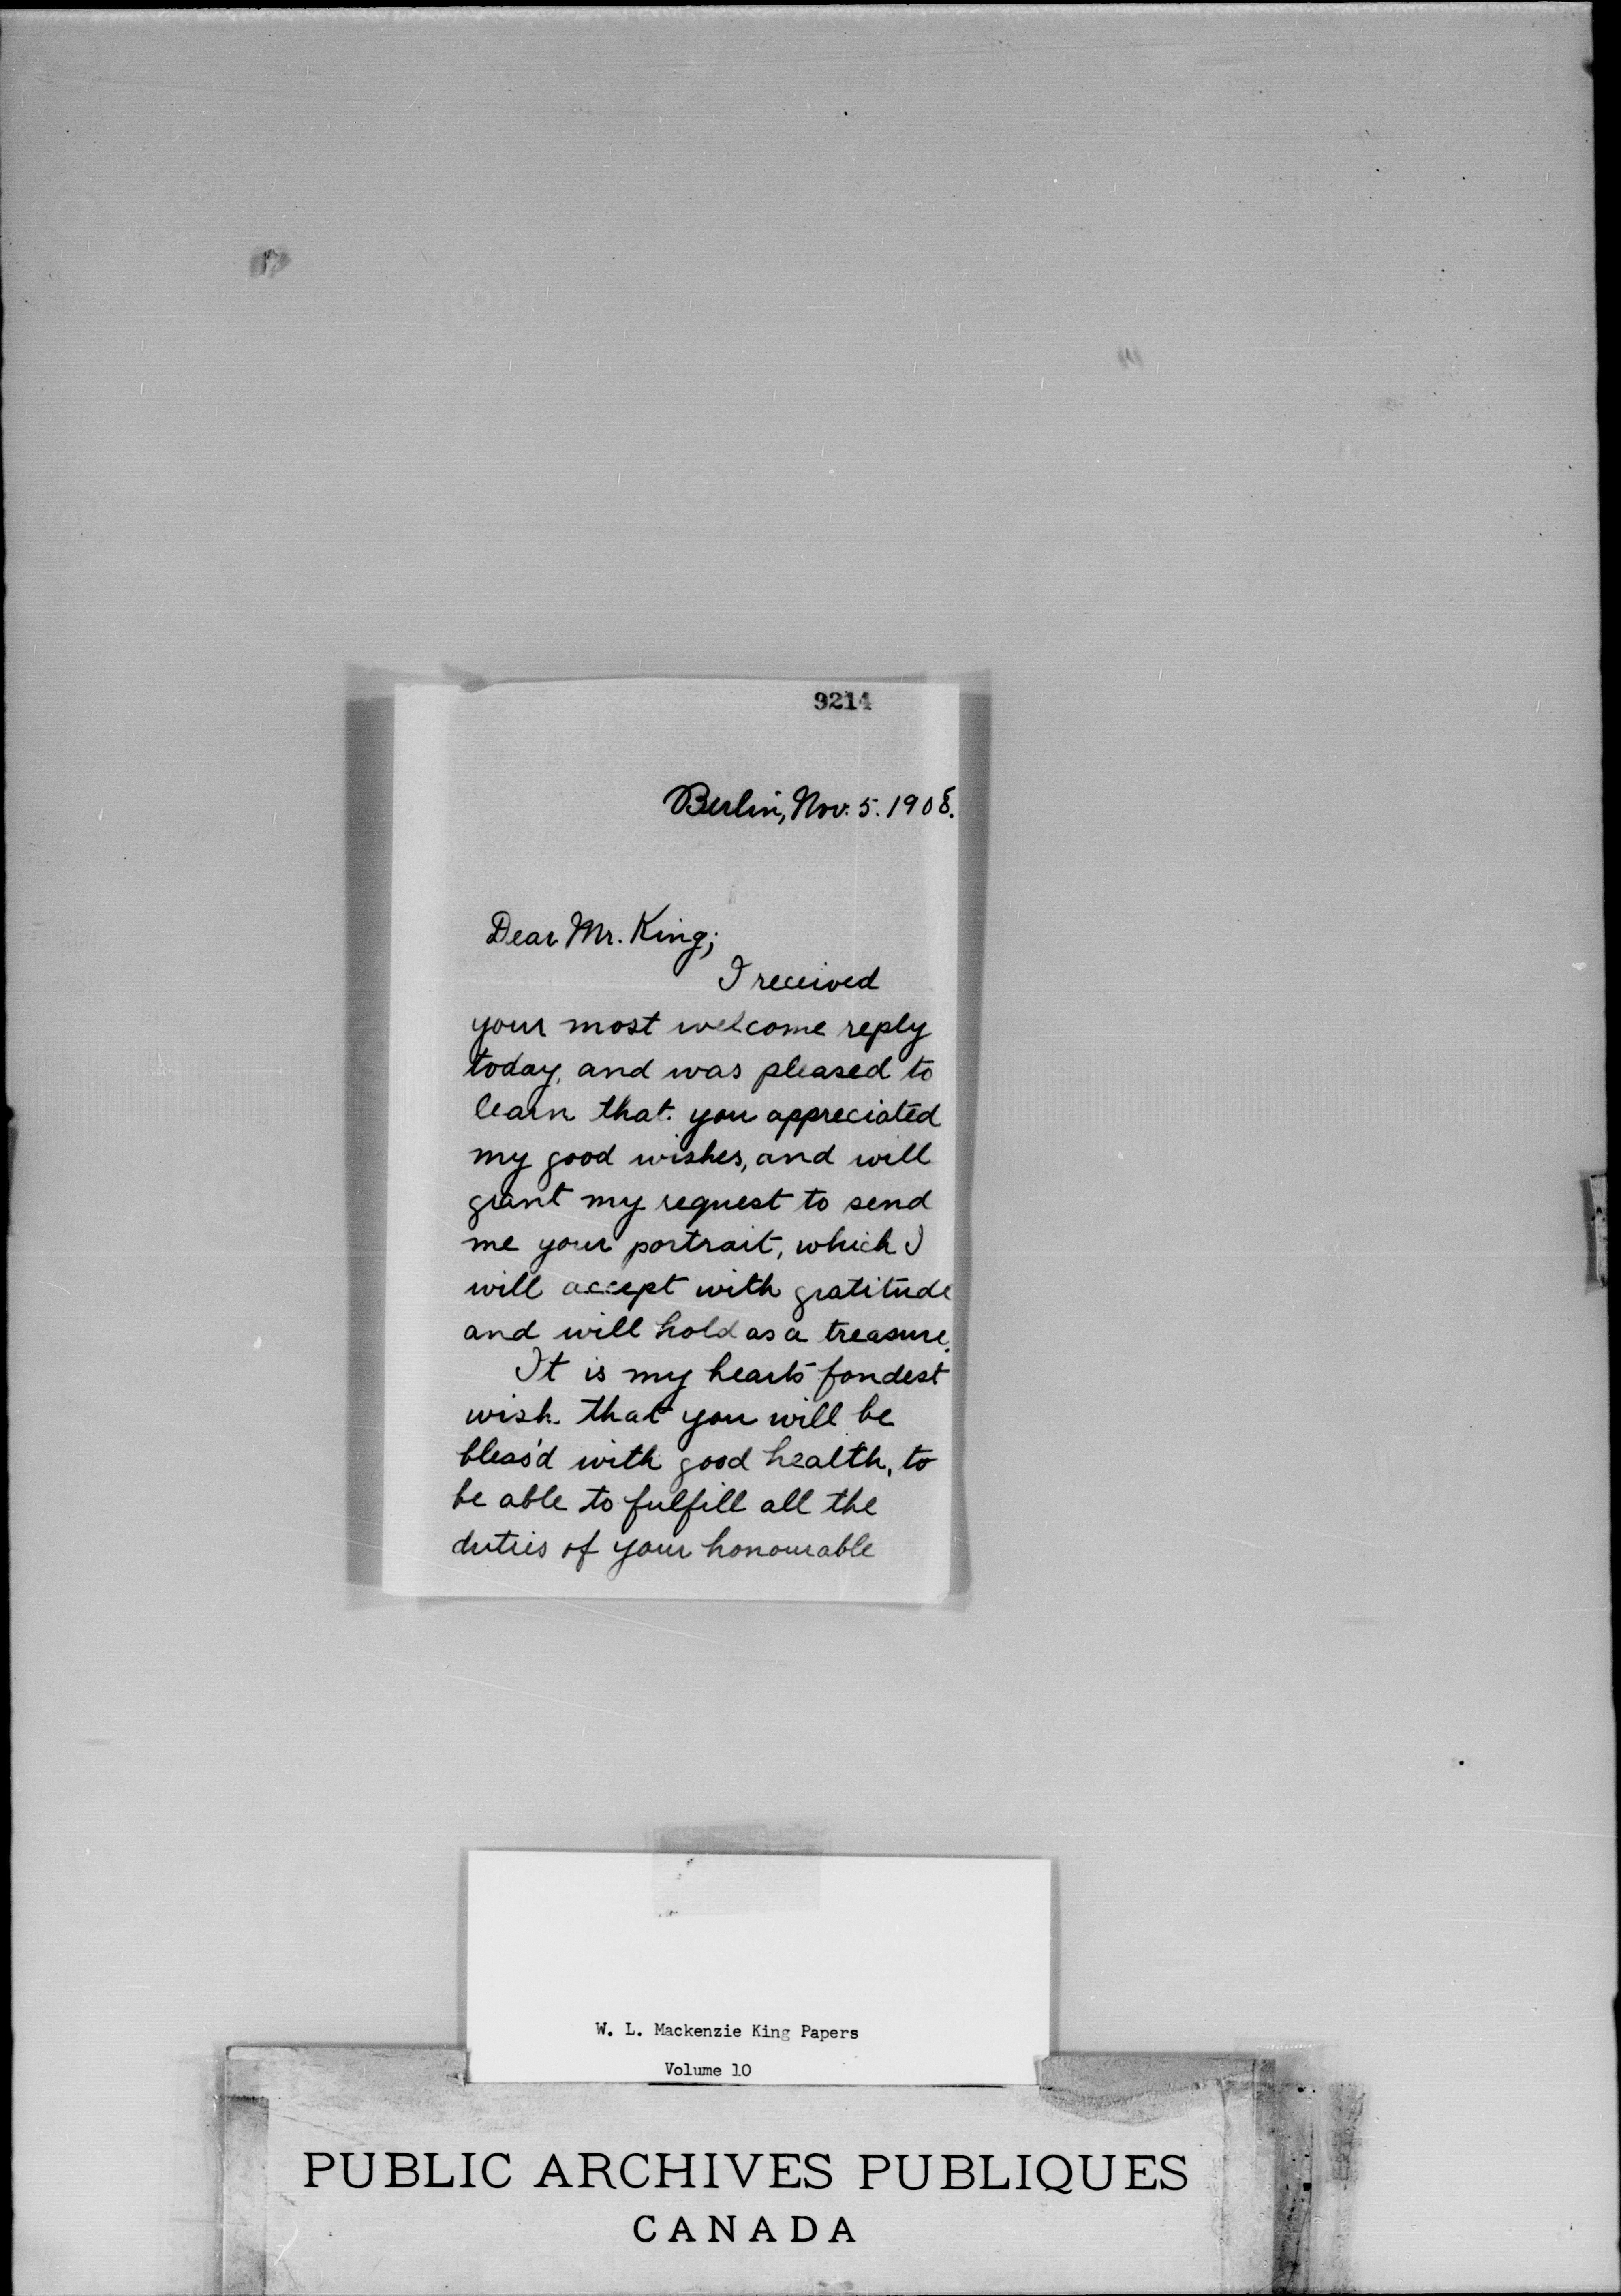 9214
Berlin, Nov. 5. 1908.
Dear Mr. King;
I received
your most welcome reply
today, and was pleased to
learn that you appreciated
my good wishes, and will
grant my request to send
me your portrait, which I
will accept with gratitude
and will hold as a treasure.
It is my hearts fondest
wish that you will be
bless'd with good health, to
be able to fulfill all the
duties of your honourable
W. L. Mackenzie King Papers
Volume 10
PUBLIC ARCHIVES PUBLIQUES
CANADA